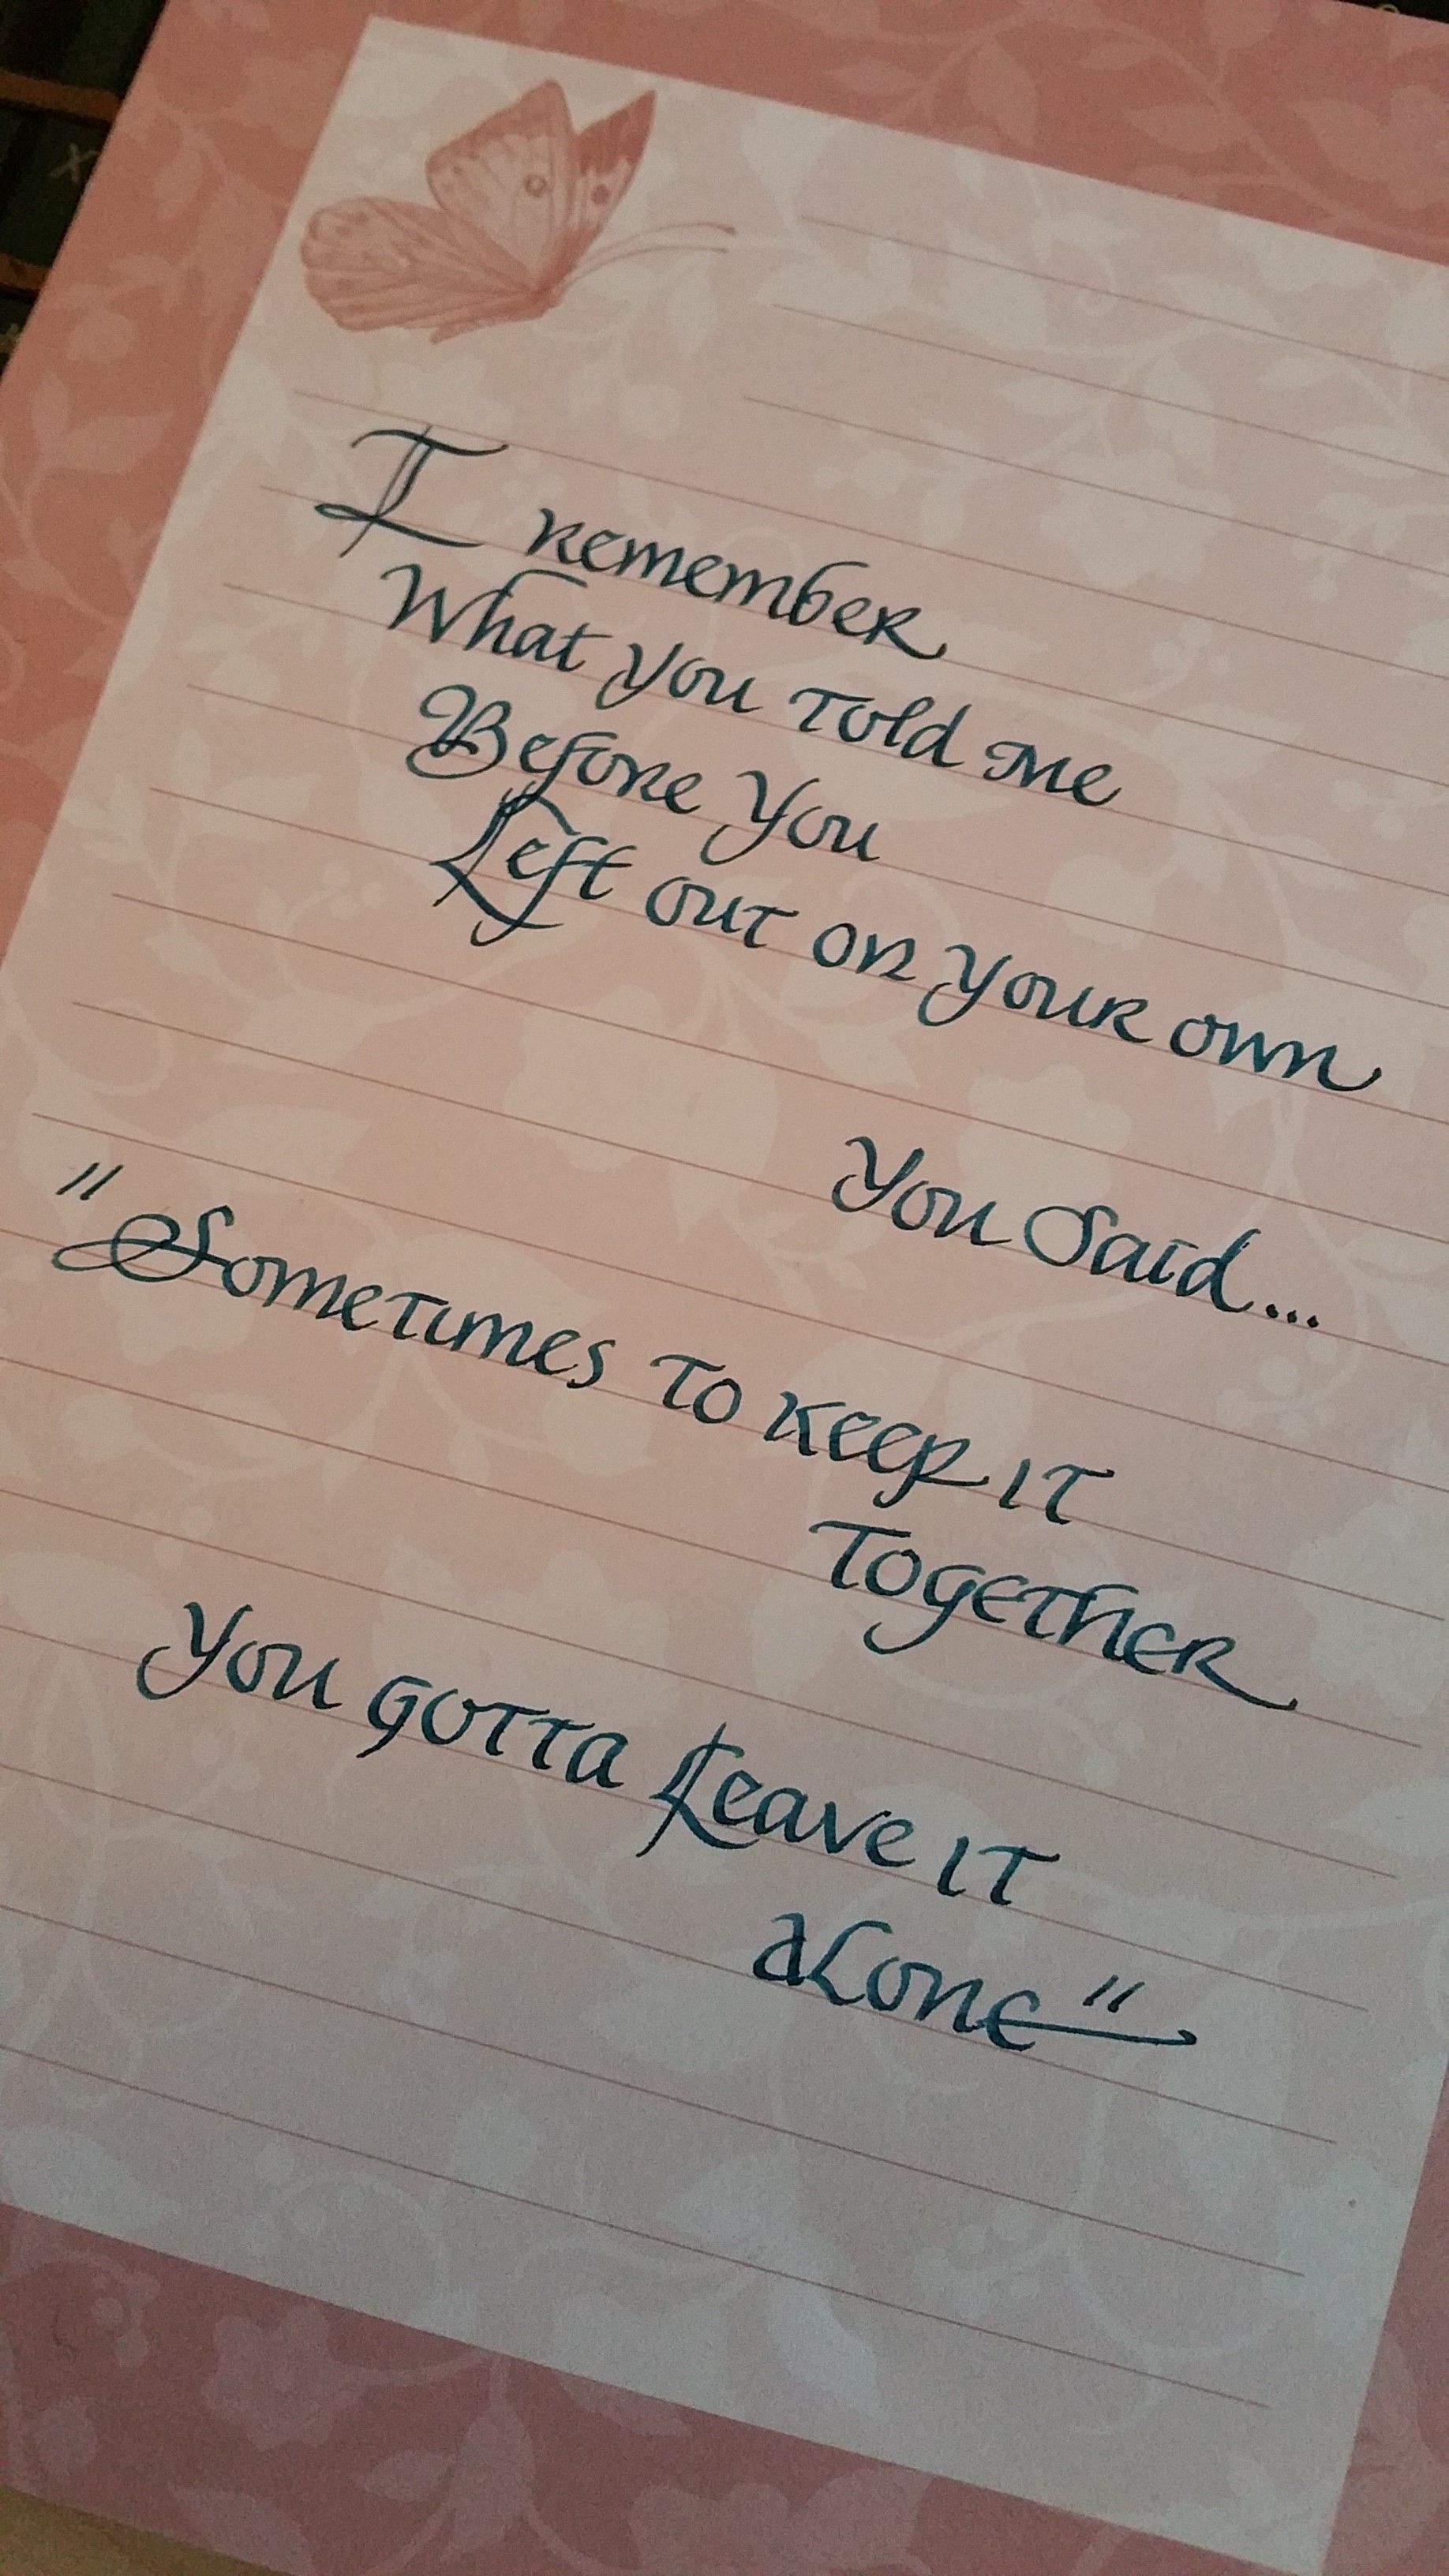 I remember
What you told me
Before you
Left out on your own
You Said...
"Sometimes to keep it
Together
You gotta Leave it
aLone"